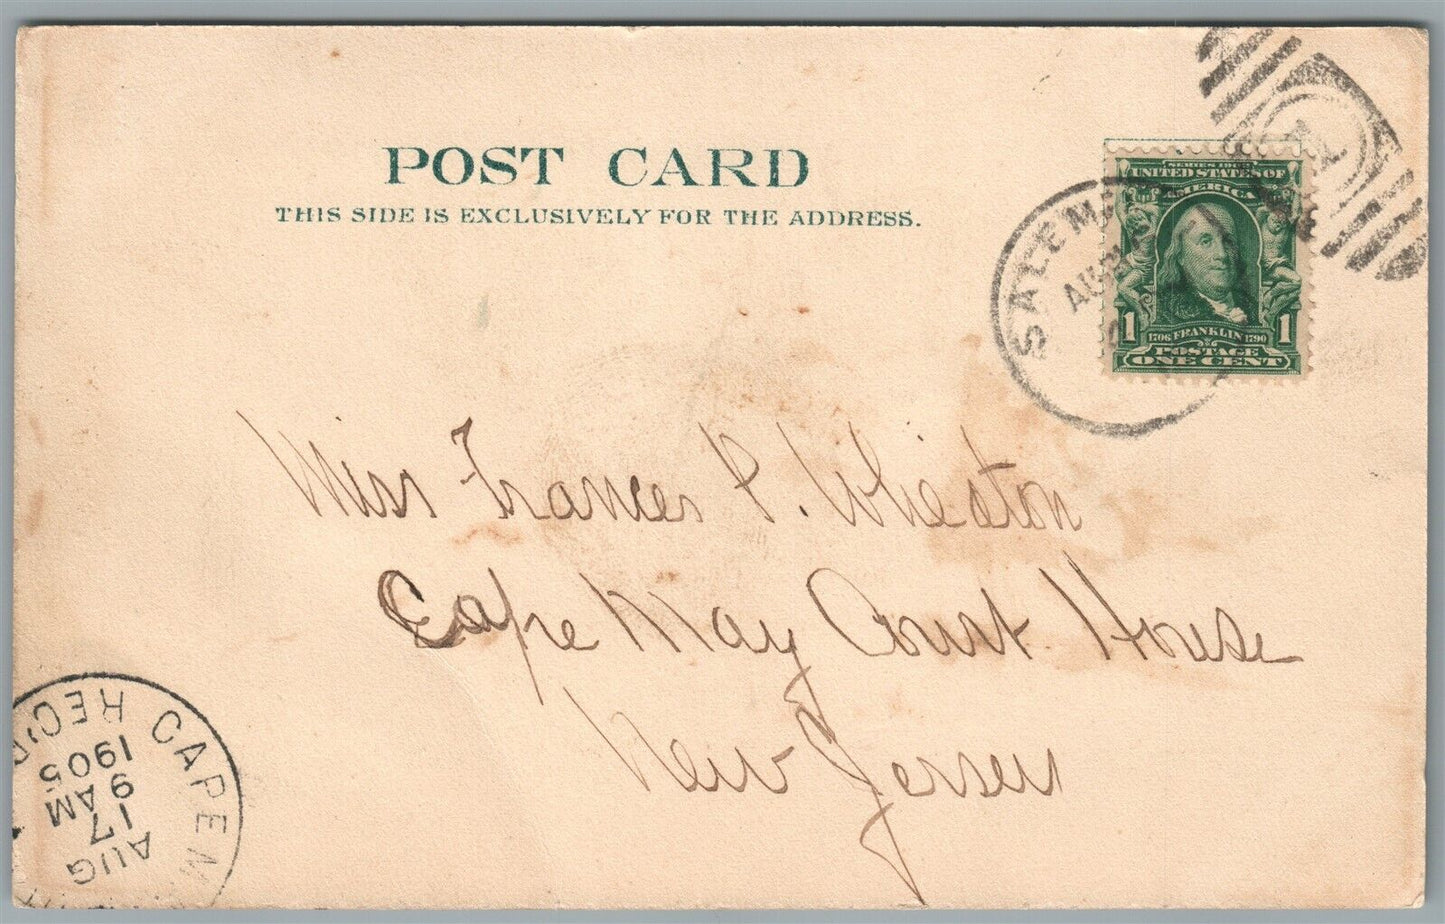 POST CARD
THIS SIDE IS EXCLUSIVELY FOR THE ADDRESS.
SALEM
AUG
UNITED STATES OF
AMERICA
1 1706 FRANKLIN 1790 1
POSTAGE
ONE CENT
Miss Frances P. Wheaton
Cape May Court House
New Jersey
CAPE M
AUG
17
9 AM
1905
REC'D